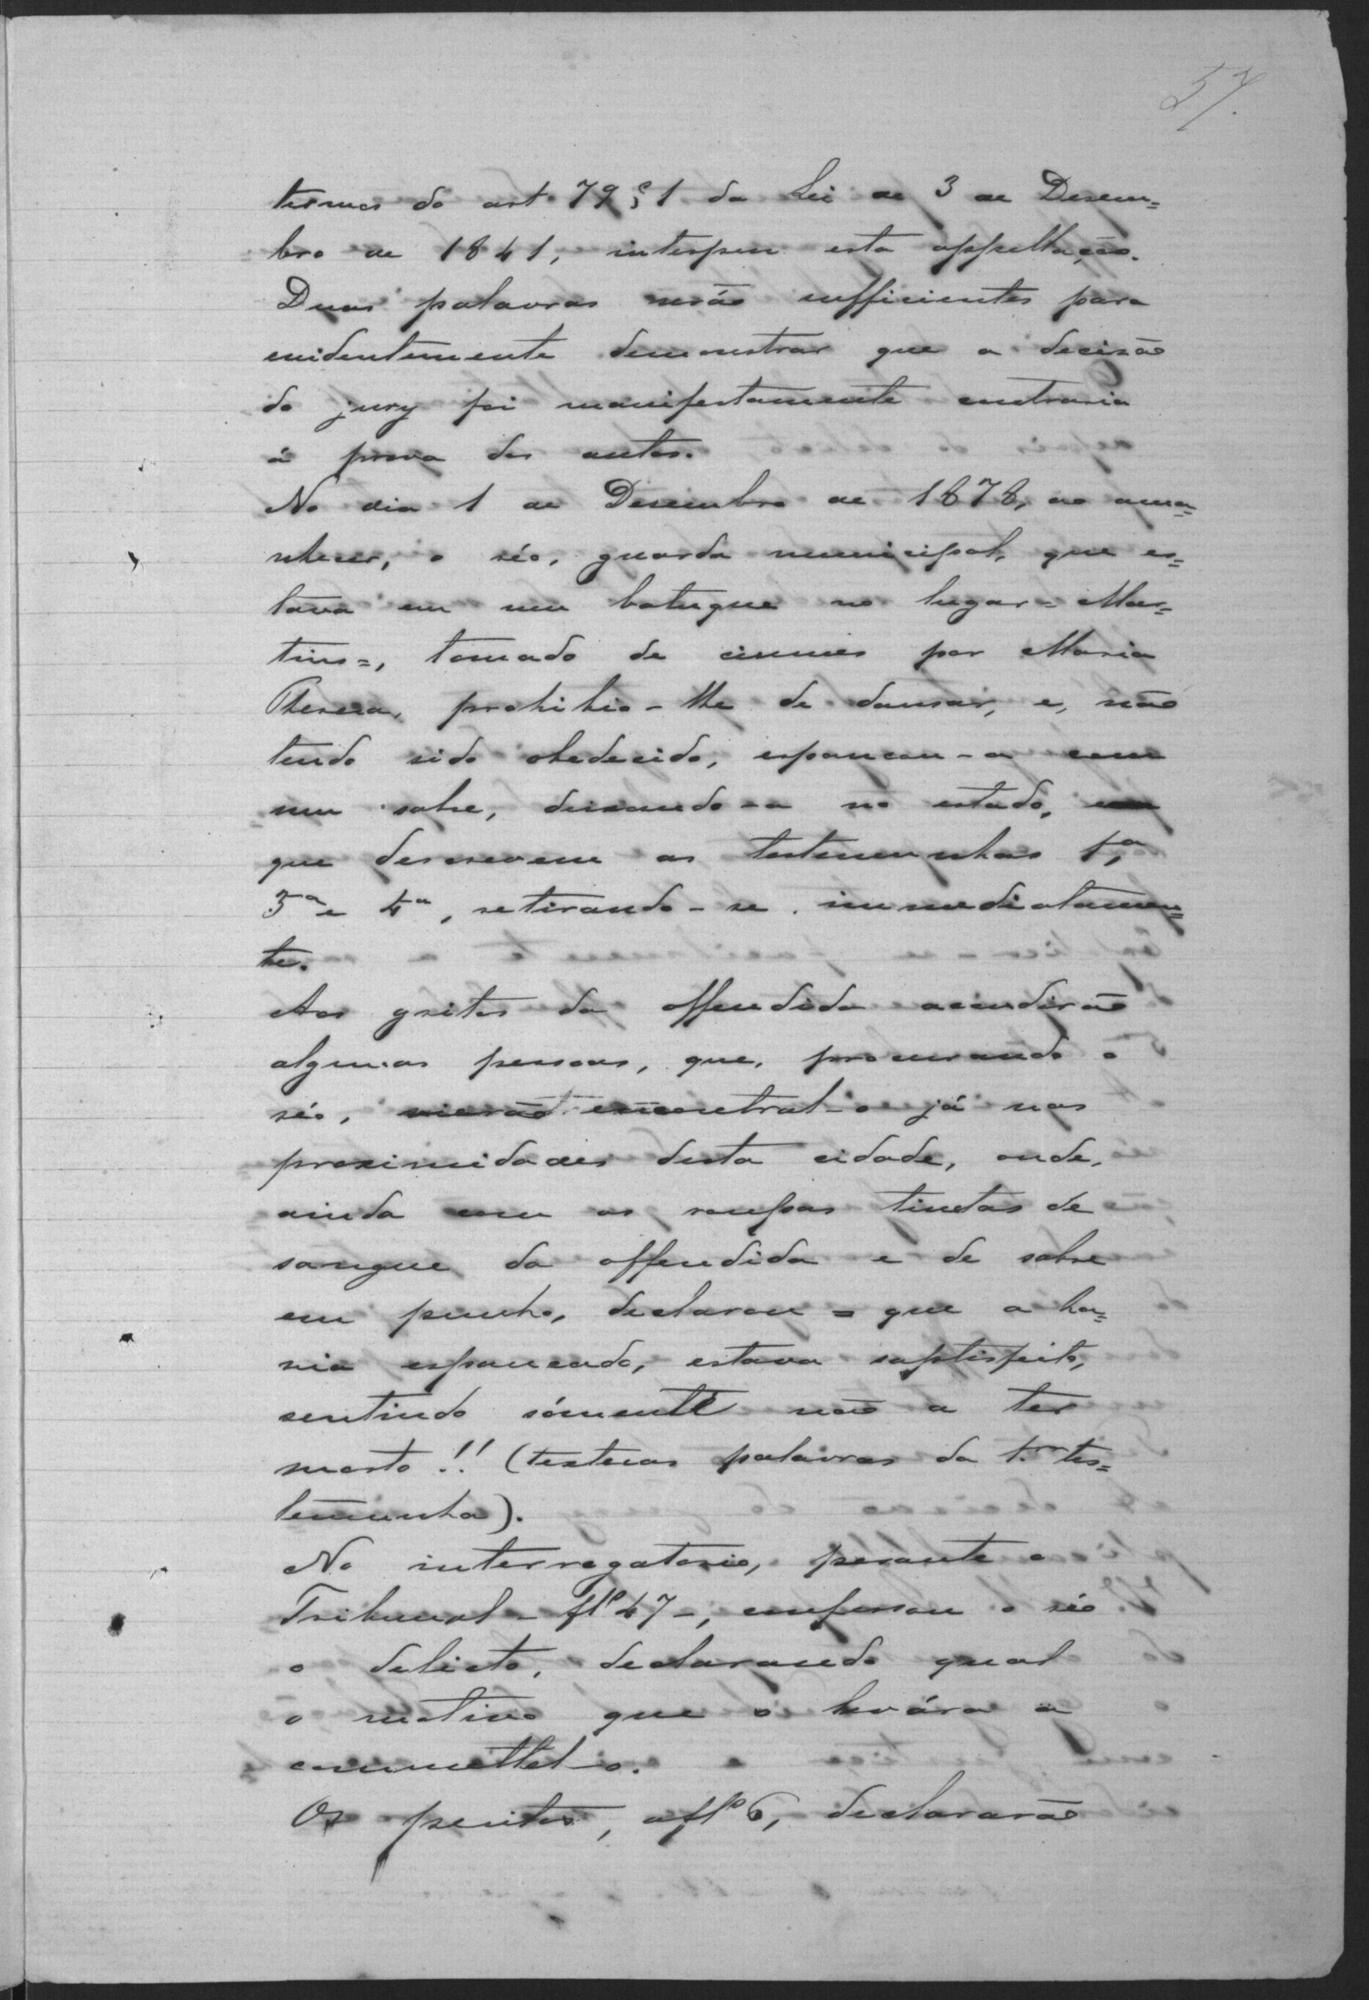 57.
termos do art. 79 § 1 da Lei de 3 de Desem=
bro de 1841, interpuz esta appellação.
Duas palavras serão sufficientes para
evidentemente demonstrar que a decisão
do jury foi manifestamente contraria
á prova dos autos.
No dia 1 de Desembro de 1878, ao ama=
nhecer, o réo, guarda municipal, que es=
tava em um batuque no lugar = Mar=
tins =, tomado de ciumes por Maria
Thereza, prohibio-lhe de dansar, e, não
tendo sido obedecido, espancou-a com
um sabre, deixando-a no estado, em
que descrevem as testemunhas 1ª,
3ª e 4ª, retirando-se immediatamen=
te.
Aos gritos da offendida acudirão
algumas pessoas, que, procurando o
réo, vierão encontral-o já nas
proximidades desta cidade, onde,
ainda com as roupas tinctas de
sangue da offendida e de sabre
em punho, declarou = que a ha=
via espancado, estava saptisfeito,
sentindo sómente não a ter
morto!! (textuas palavras da 1ª tes=
temunha).
No interrogatorio, perante o
Tribunal - fls 47 -, confessou o réo
o delicto, declarando qual
o motivo que o levára a
commettel-o.
Os peritos, a fls 6, declararão